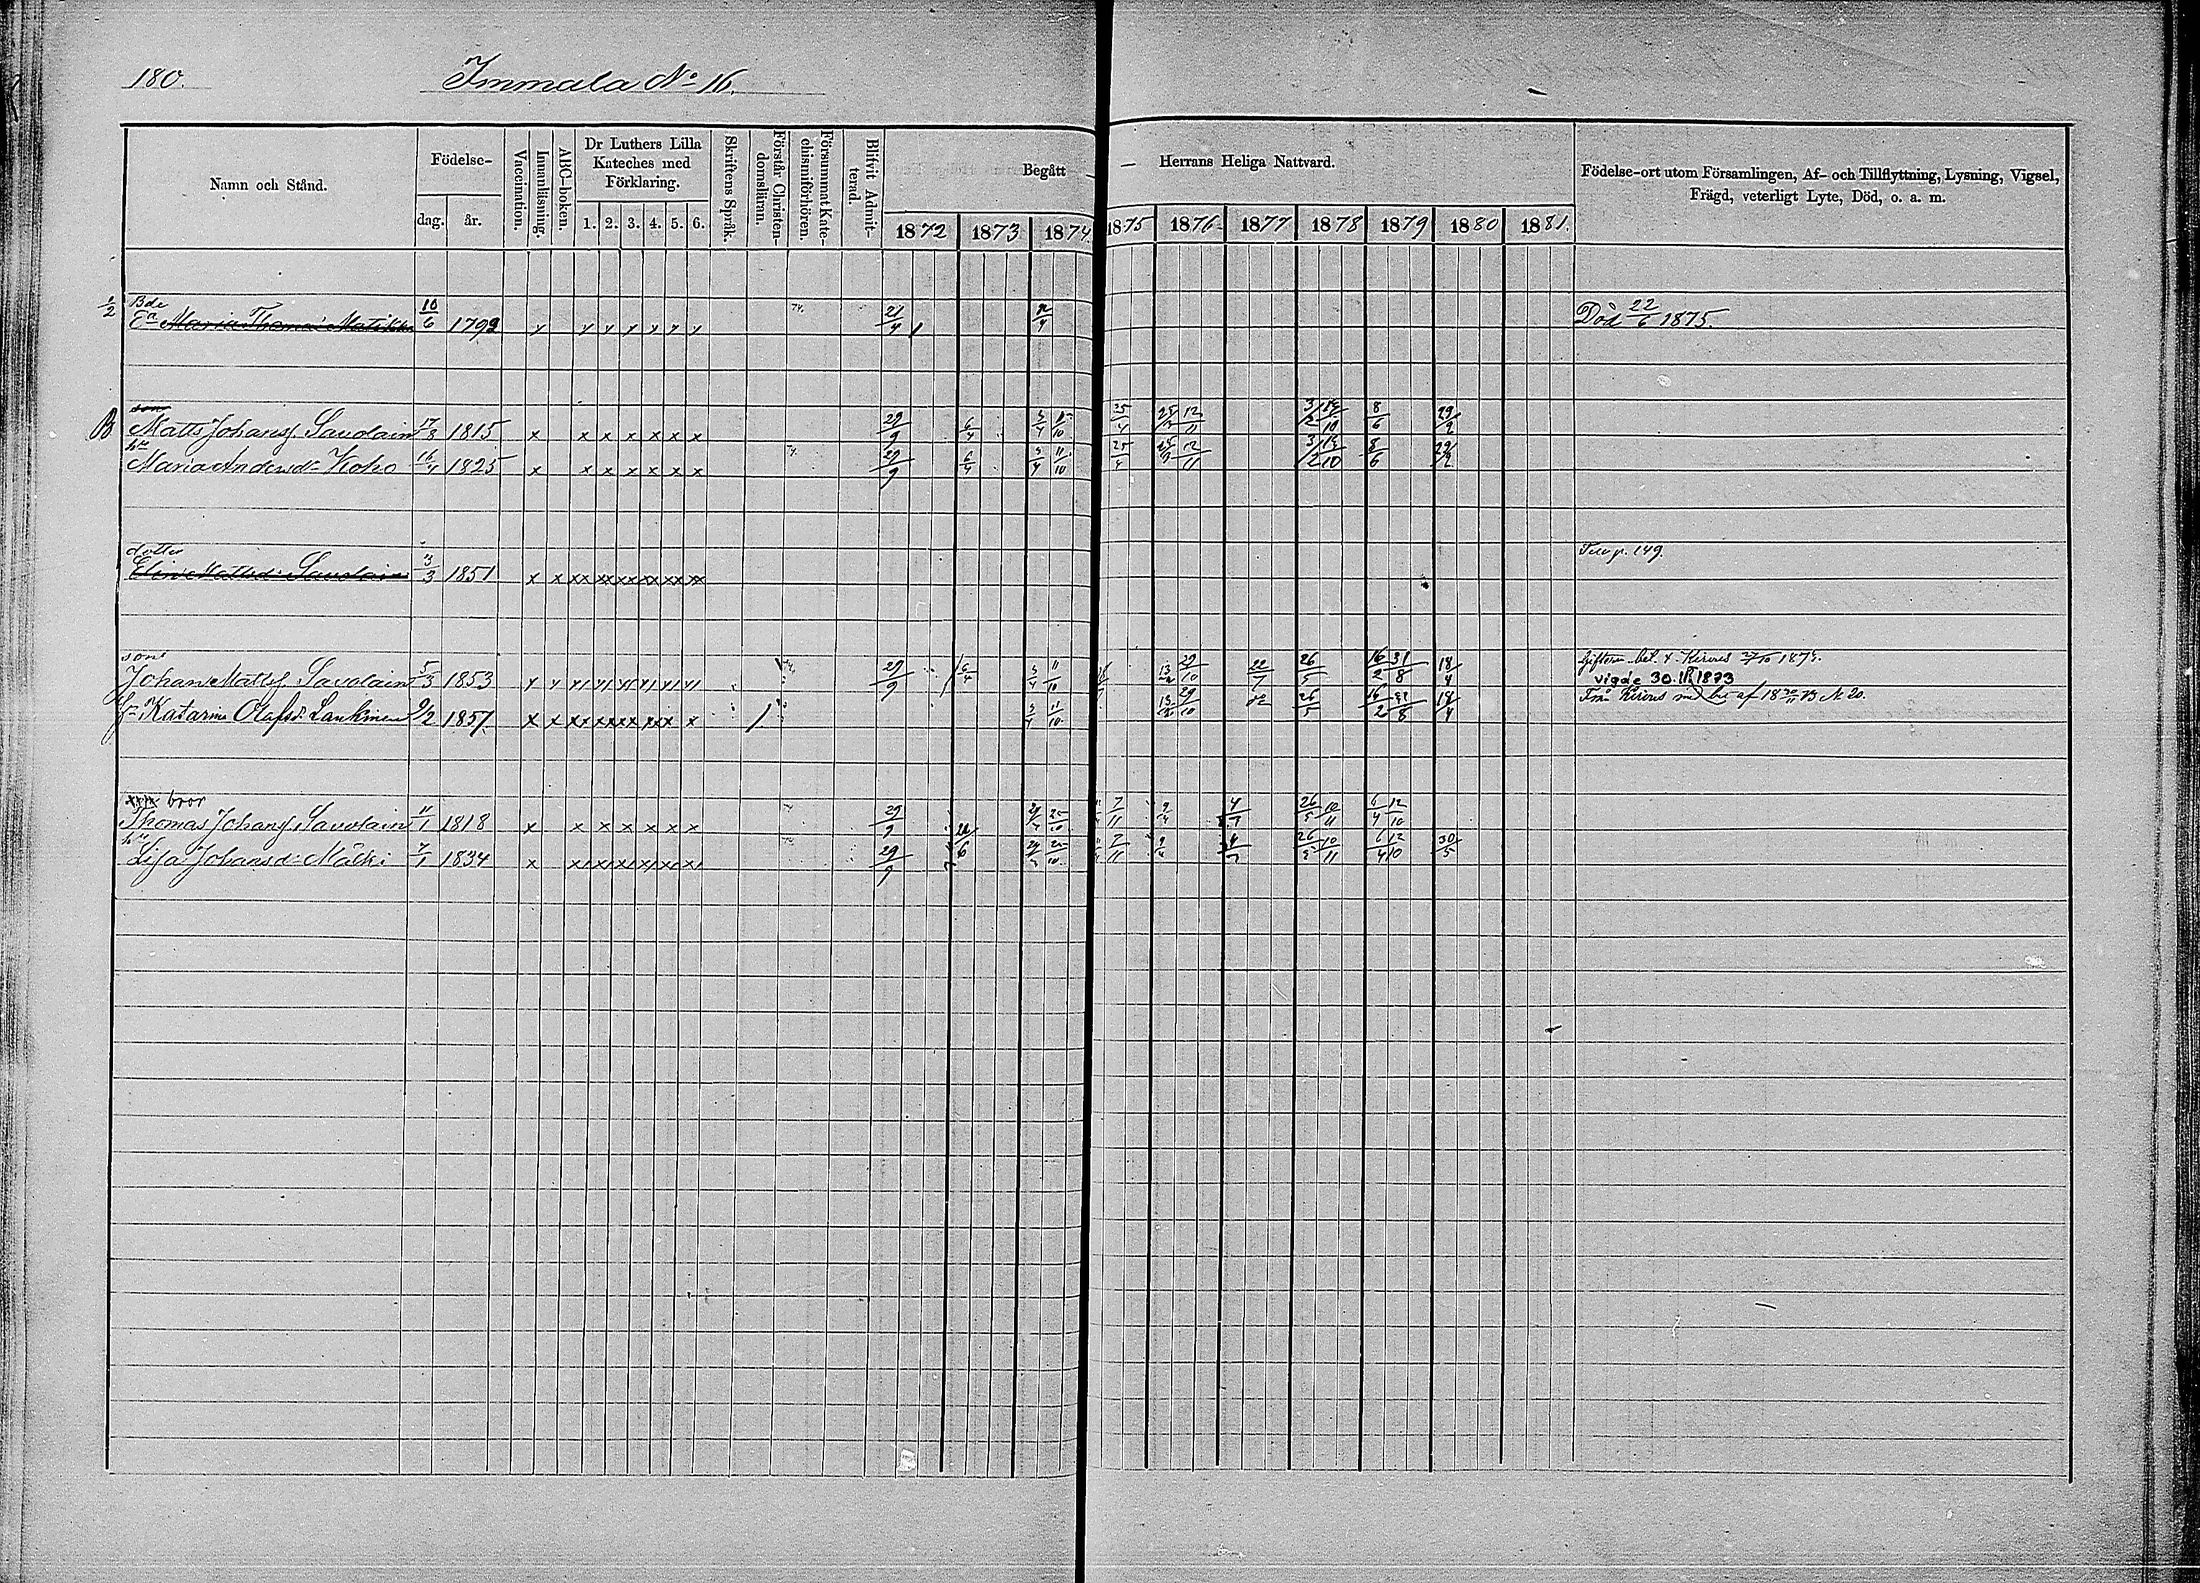 180. Immala No 16.
Namn och Stånd. Födelse- dag. år. Vaccination. Innanläsning. ABC-boken. Dr Luthers Lilla Kateches med Förklaring. 1. 2. 3. 4. 5. 6. Skriftens Språk. Förstår Christendomsläran. Försummat Katechismiförhören. Blifvit Admitterad. Begått Herrans Heliga Nattvard.
1872 1873 1874 1875 1876 1877 1878 1879 1880 1881.
Födelse-ort utom Församlingen, Af- och Tillflyttning, Lysning, Vigsel,
Frägd, veterligt Lyte, Död, o. a. m.
1/2 Bde
Ea Maria Thomasd. 10/6 1792 x x x x x x x 74. 21/4 Död 22/6 1875.
son
B Matts Johansf Savolain 17/8 1815 x x x x x x x 29/9 6/4 25/4 12/11 3/2 8/6 29/2
hu
Maria Andersdr Koho 16/4 1825 x x x x x x x 74. 29/9 6/4 11/10 25/4 12/11 3/2 8/6 29/2
dotter
Elin Mattsdr Savolain 3/3 1851 x x xx xx xx xx xx xx p. 149.
son
Johan Mattsf Savolain 5/3 1853 29/9 6/4 11/10 29/10 22/7 26/5 16/2 31/8 18/4 bet. t. Kirvus
vigde 30.11.1873
hu Katarina Olofsd. Lankinen 9/2 1851. 11/10 29/10 26/5 16/2 18/4 Från Kirvus N 20.
bror
Thomas Johansf Savolain 11/1 1818 x x x x x x x 29/9 7/11 9/4 4/7 26/5 10/11 6/4 12/10
hu
Lisa Johansdr Mäki 7/1 1834 29/9 22/6 7/11 9/4 4/7 26/5 10/11 6/4 12/10 30/5